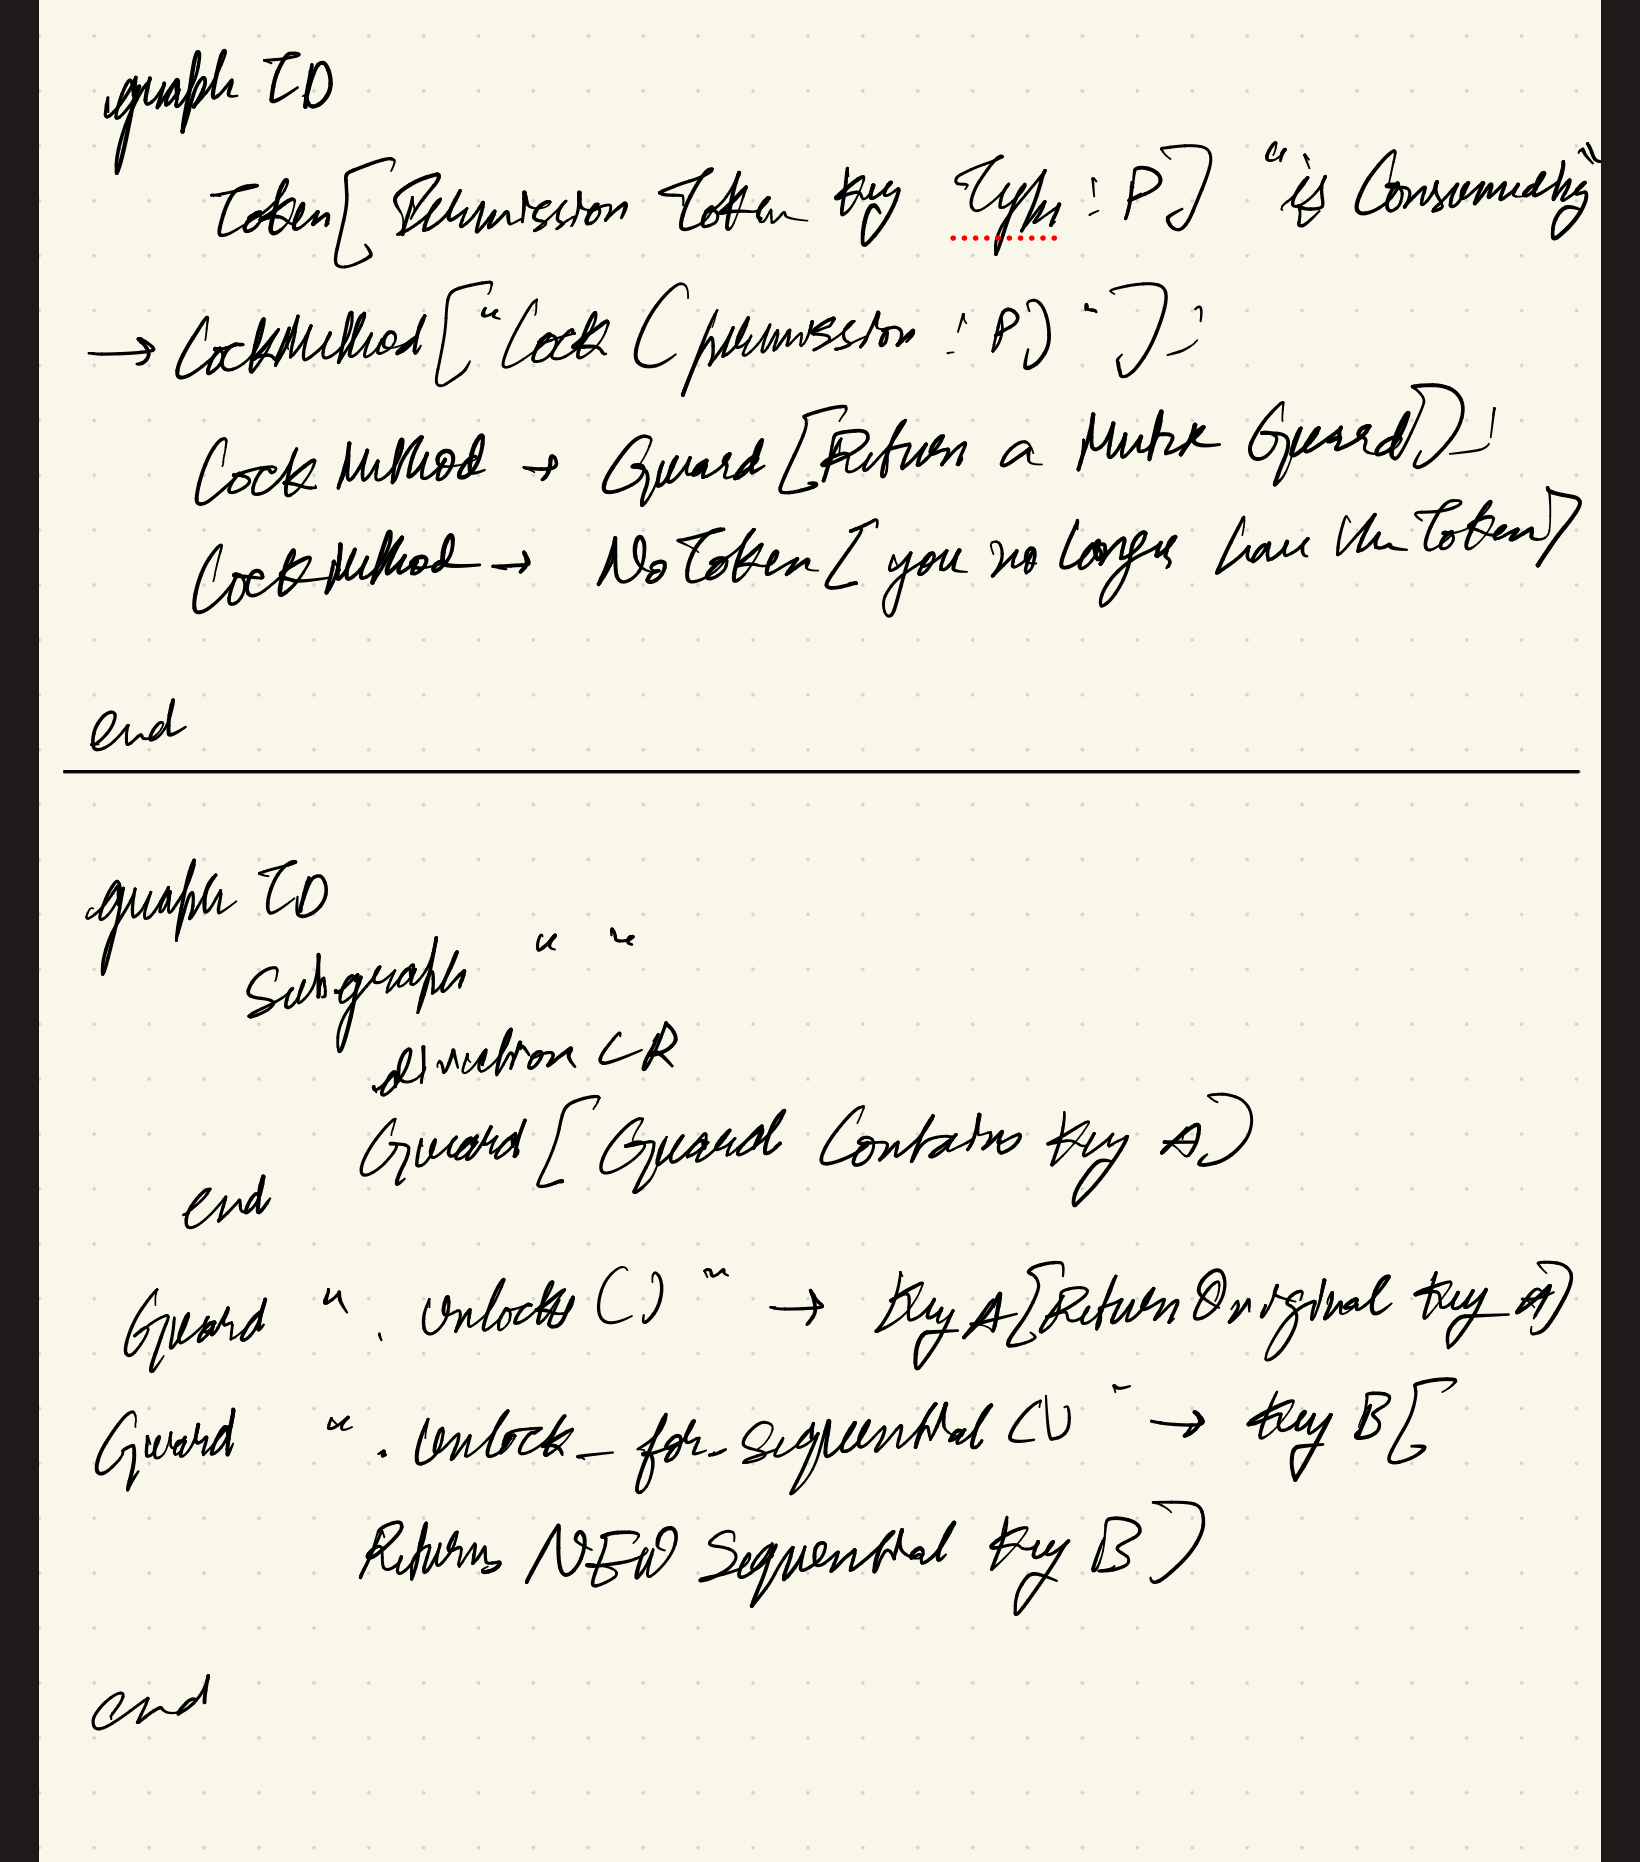 graph TD
Token[Permission Token Key Type : P] "is Consumed by"
→ LockMethod["Lock (permission : P)"];
LockMethod → Guard[Return a Mutex Guard];
LockMethod → NoToken[you no longer have the Token]
end
graph TD
Subgraph " "
direction LR
Guard[Guard Contains Key A]
end
Guard ".unlock()" → Key A[Return Original Key A]
Guard ".unlock_for_sequential()" → Key B[
Returns NEW Sequential Key B]
end